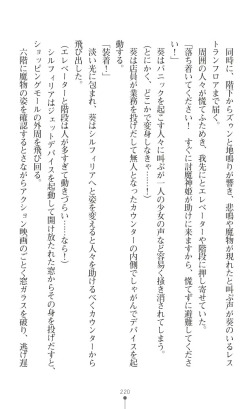 同時に、階下からズゥンと地鳴りが響き、悲鳴や魔物が現れたと叫ぶ声が葵のいるレス
トランフロアまで届く。
周囲の人々が慌てふためき、我先にとエレベーターや階段に押し寄せていた。
「落ち着いてください！　すぐに討魔神姫が助けに来ますから、慌てずに避難してくださ
い！」
葵はパニックを起こす人々に叫ぶが一人の少女の声など容易く掻き消されてしまう。
（とにかく、どこかで変身しなきゃ……！）
葵は店員が業務を投げだして無人となったカウンターの内側でしゃがんでデバイスを起
動する。
「装着！」
淡い光に包まれ、葵はシルフィリアへと姿を変えると人々を助けるべくカウンターから
飛び出した。
（エレベーターと階段は人が多すぎて動きづらい……なら！）
シルフィリアはジェットデバイスを起動して開け放たれた窓からその身を投げだすと、
ショッピングモールの外周を飛び回る。
六階に魔物の姿を確認するとさながらアクション映画のごとく窓ガラスを破り、逃げ遅
220